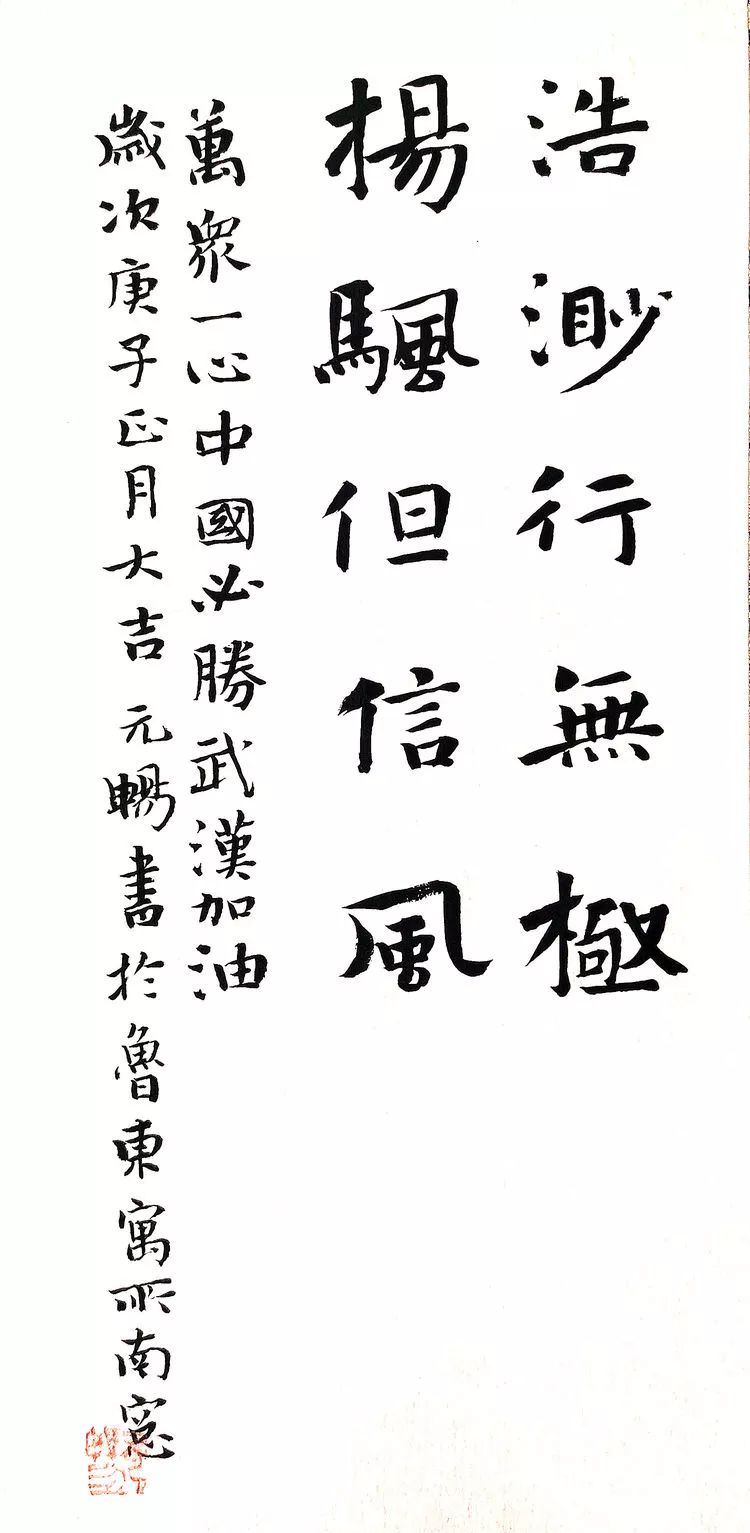 浩渺行無極
揚颿但信風
萬衆一心中國必勝武漢加油
歲次庚子正月大吉元暢書於魯東寓所南窗